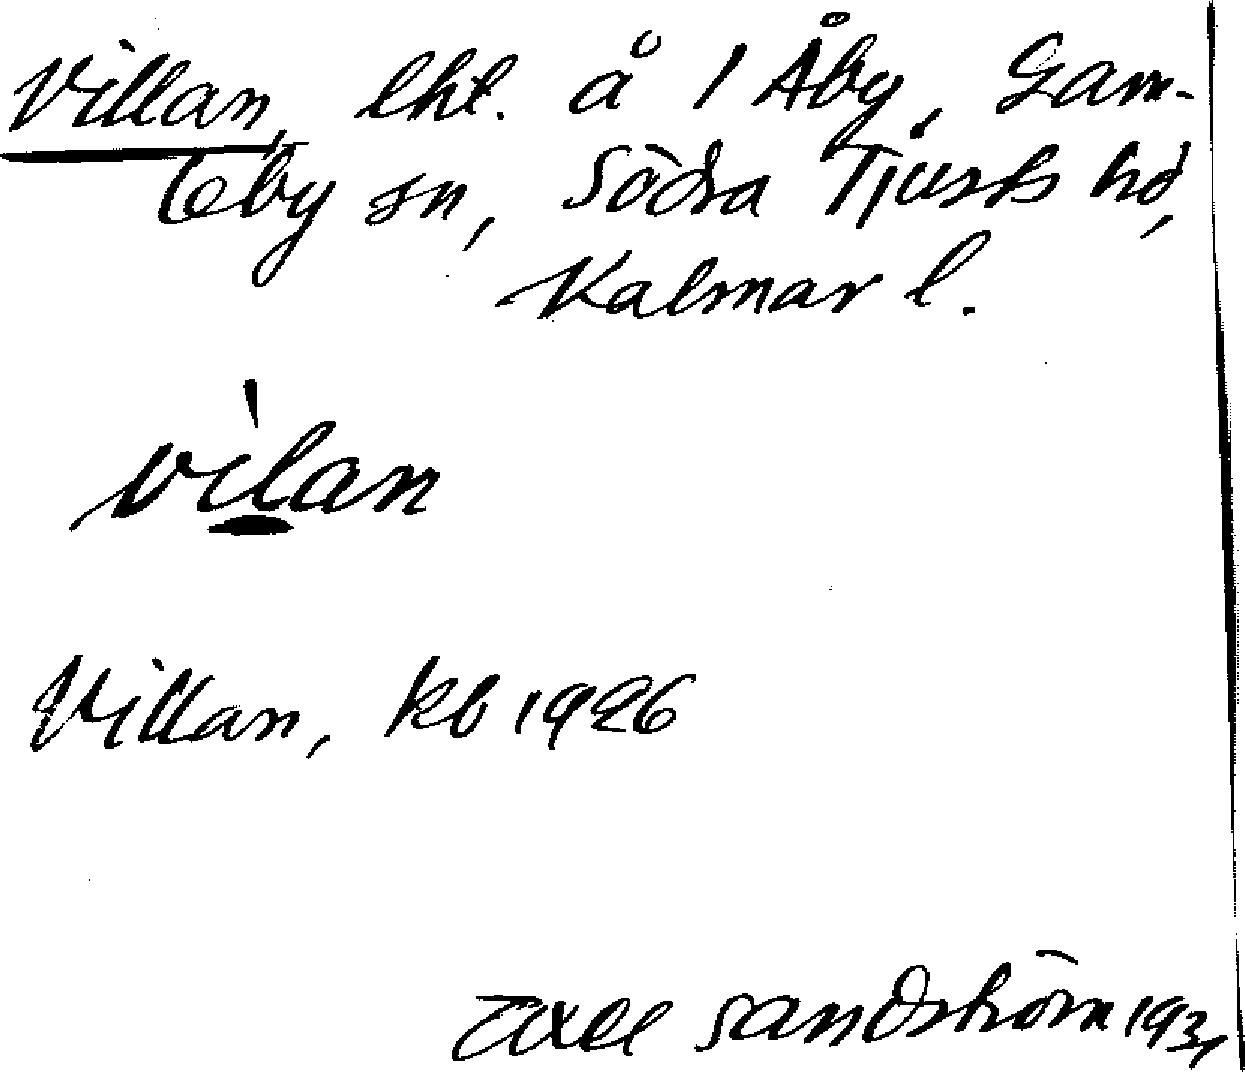 Villan, lht. å 1 Åby, Gam-
leby sn, Södra Tjusts hd,
Kalmar l.
vilan
Villan, kb 1926
Axel Sandström 1931